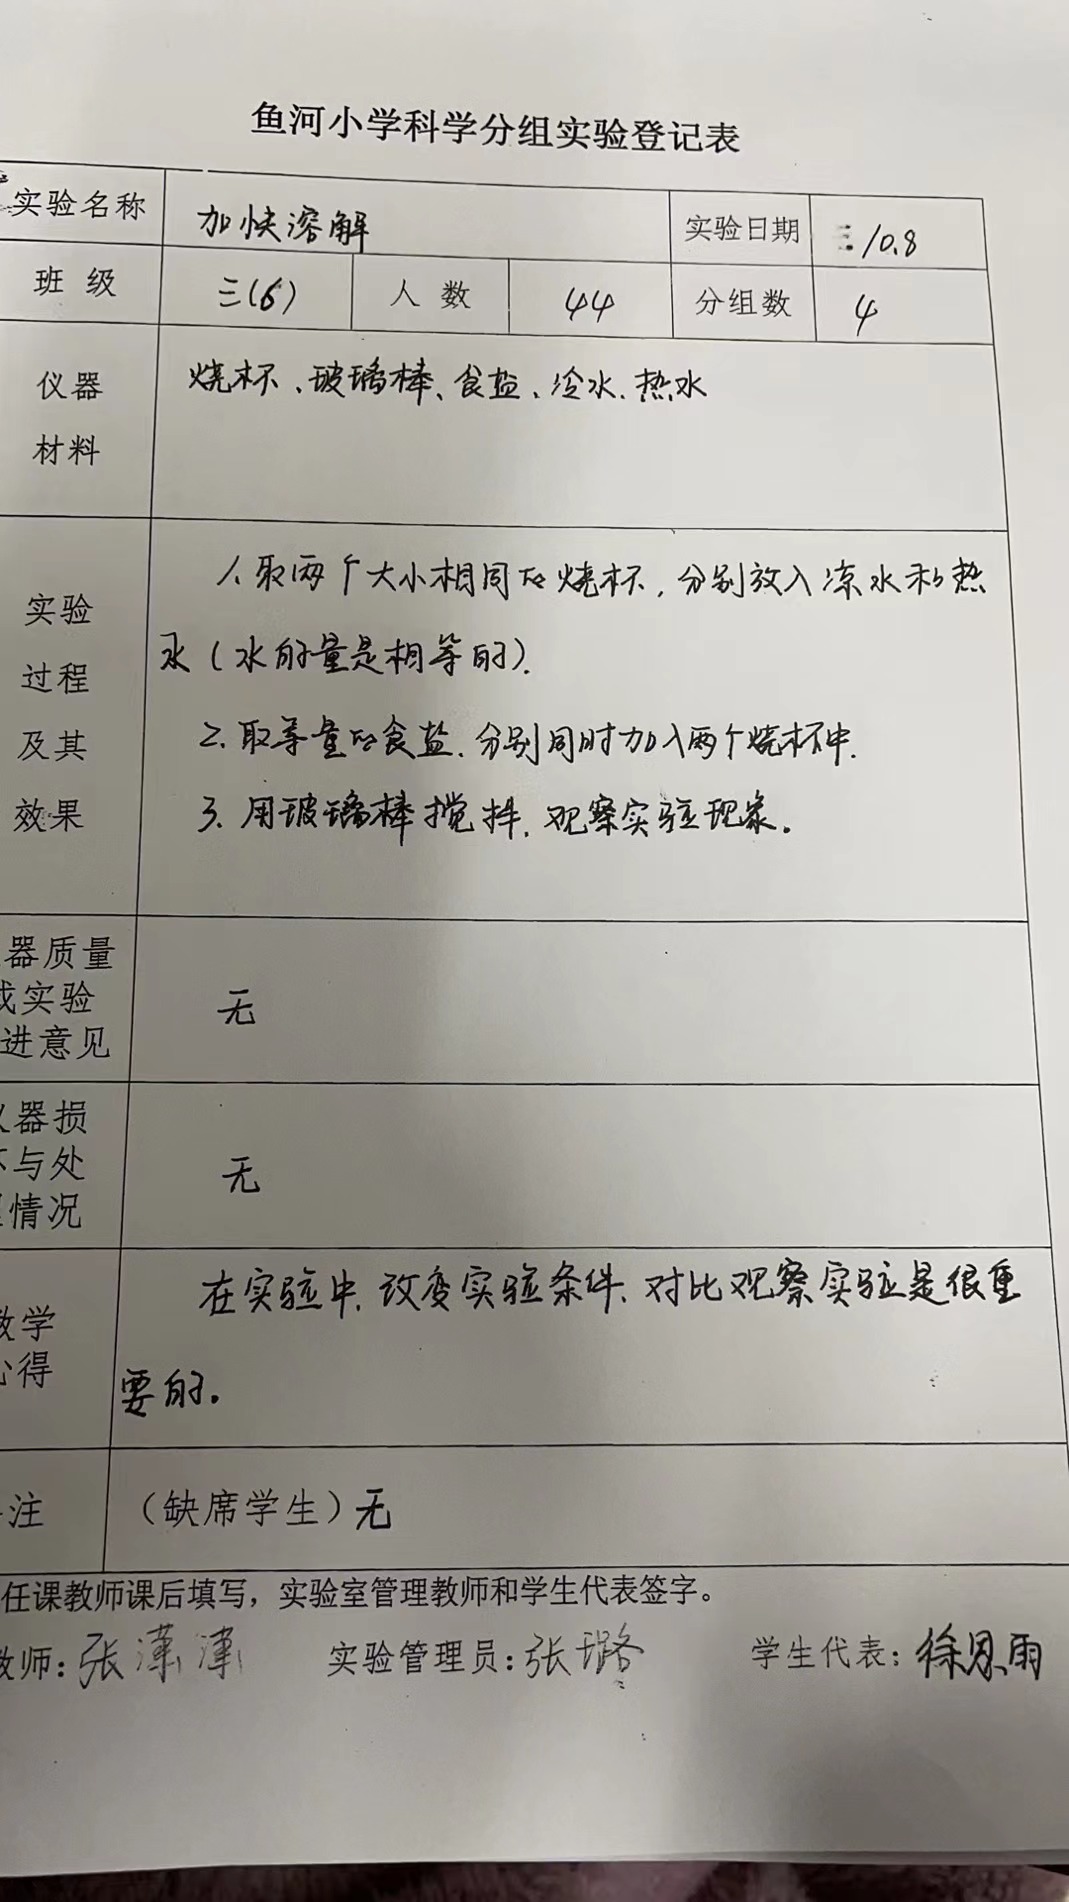 鱼河小学科学分组实验登记表
实验名称 加快溶解 实验日期 10.8
班 级 三(6) 人 数 44 分组数 4
仪器 烧杯、玻璃棒、食盐、冷水、热水
材料
1.取两个大小相同的烧杯,分别放入凉水和热
实验
水(水的量是相等的).
过程
2.取等量的食盐,分别同时加入两个烧杯中.
及其
3.用玻璃棒搅拌,观察实验现象。
效果
器质量
或实验 无
进意见
仪器损
坏与处 无
理情况
在实验中,改变实验条件、对比观察实验是很重
教学
心得
要的。
注 (缺席学生)无
任课教师课后填写,实验室管理教师和学生代表签字。
教师:张潇 实验管理员:张璐 学生代表:徐思雨